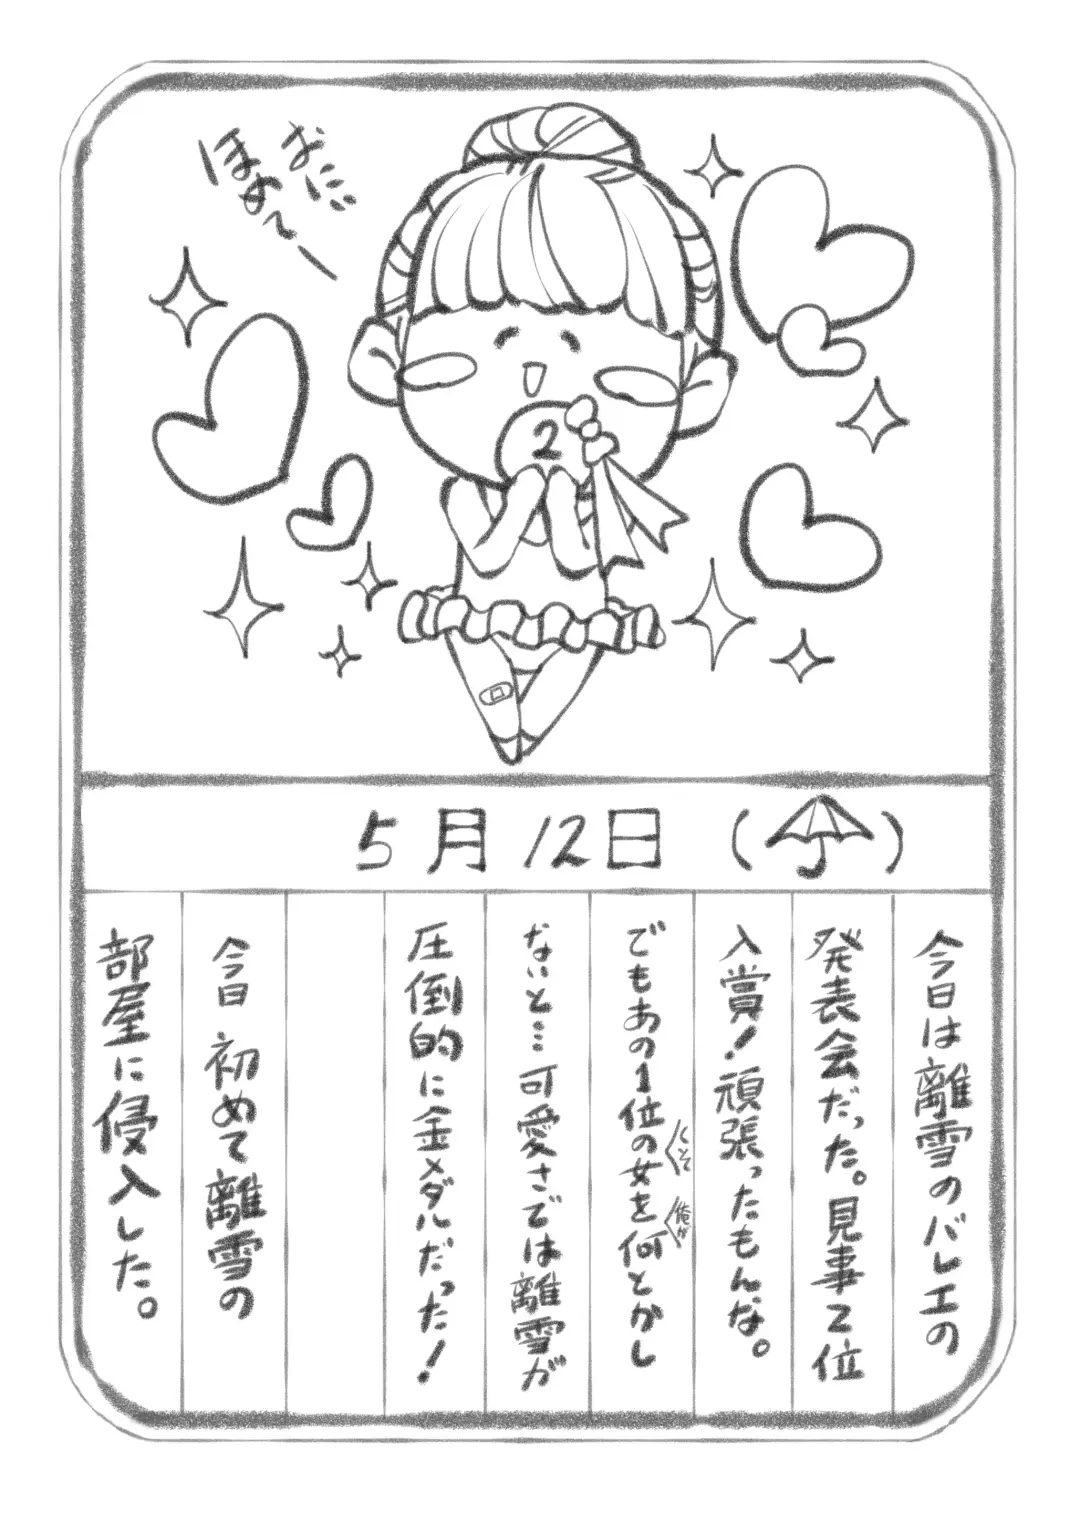 おに
ほめ〜
2
5月12日（☂）
今日は離雪のバレエの
発表会だった。見事2位
入賞！頑張ったもんな。
でもあの1位の女を何とかし
くそ
俺が
ないと…可愛さでは離雪が
圧倒的に金メダルだった！
今日初めて離雪の
部屋に侵入した。